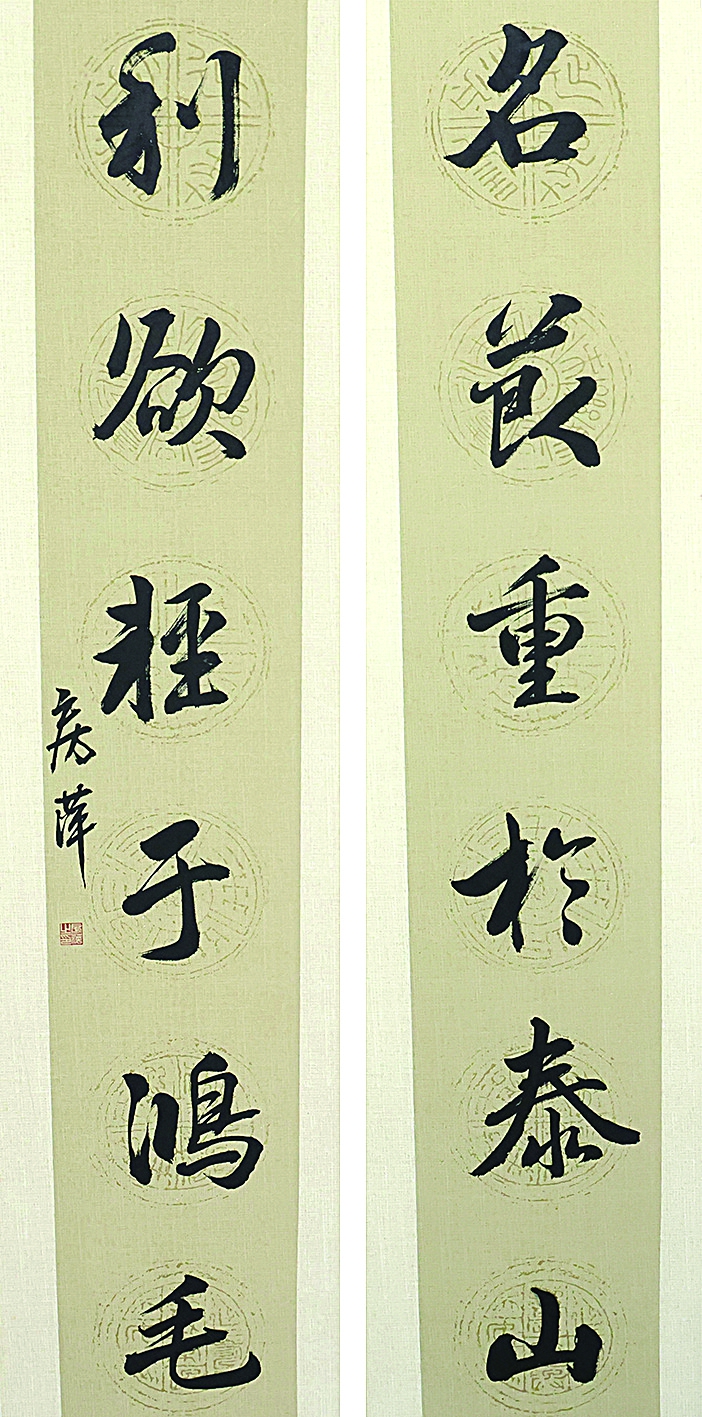 名節重於泰山
利欲輕于鴻毛
房萍